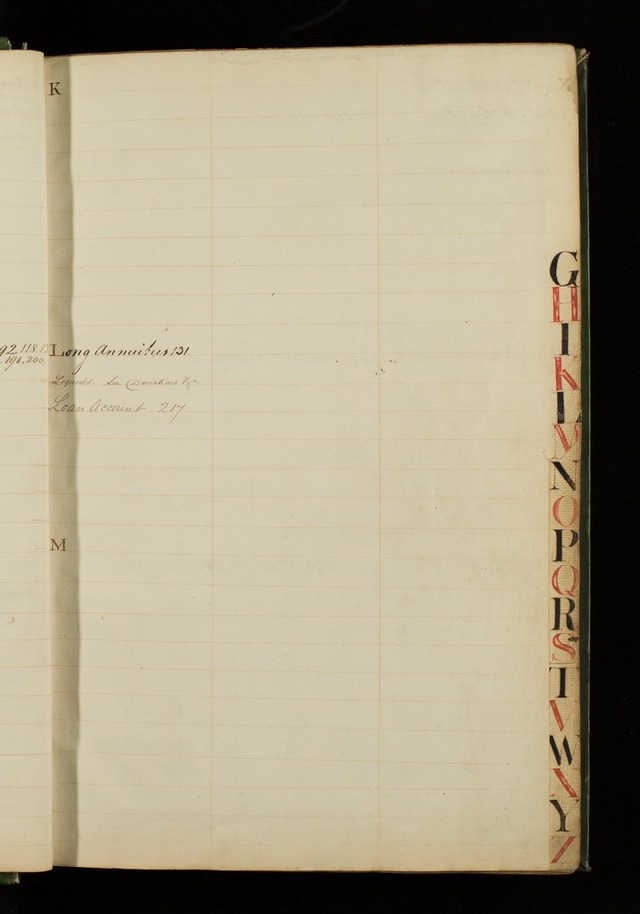 K
92.118.1
Long Annuities 131.
.191.200.
Legacies. See Donations &c.
Loan Account 217
M
G
H
I
K
L
M
N
O
P
Q
R
S
T
V
W
X
Y
Z